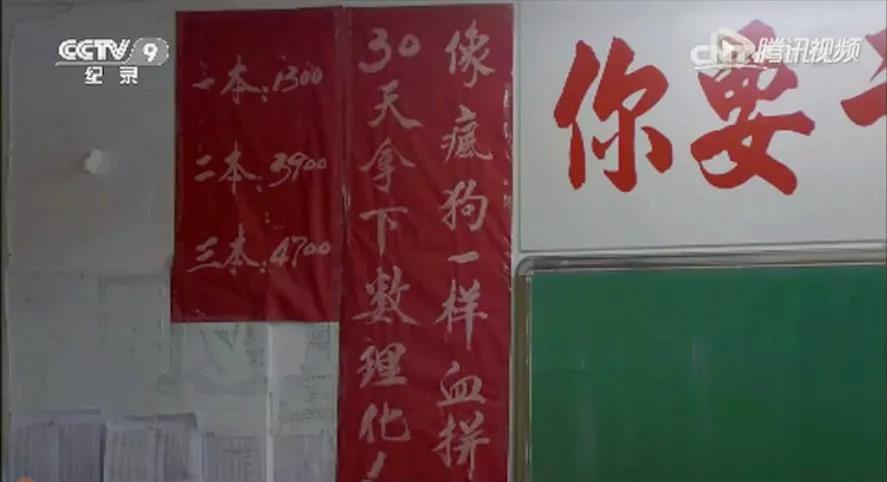 CCTV 9
纪录
腾讯视频
一本:1300
二本:3900
三本:4700
像疯狗一样血拼
30天拿下数理化
你要